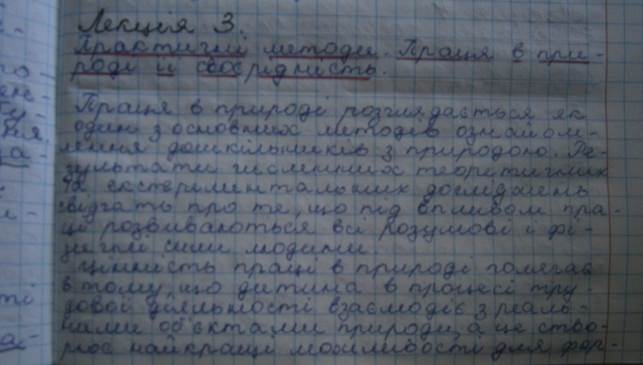 Лекція 3.
Практичні методи. Праця в при-
роді її своєрідність.
Праця в природі розглядається як
один з основних методів ознайом-
лення дошкільників з природою. Ре-
зультати численних теоретичних
та експериментальних досліджень
свідчать про те, що під впливом пра-
ці розвиваються всі розумові і фі-
зичні сили людини.
Цінність праці в природі полягає
в тому, що дитина в процесі тру-
дової діяльності взаємодіє з реаль-
ними об'єктами природи, а це ство-
рює найкращі можливості для фор-